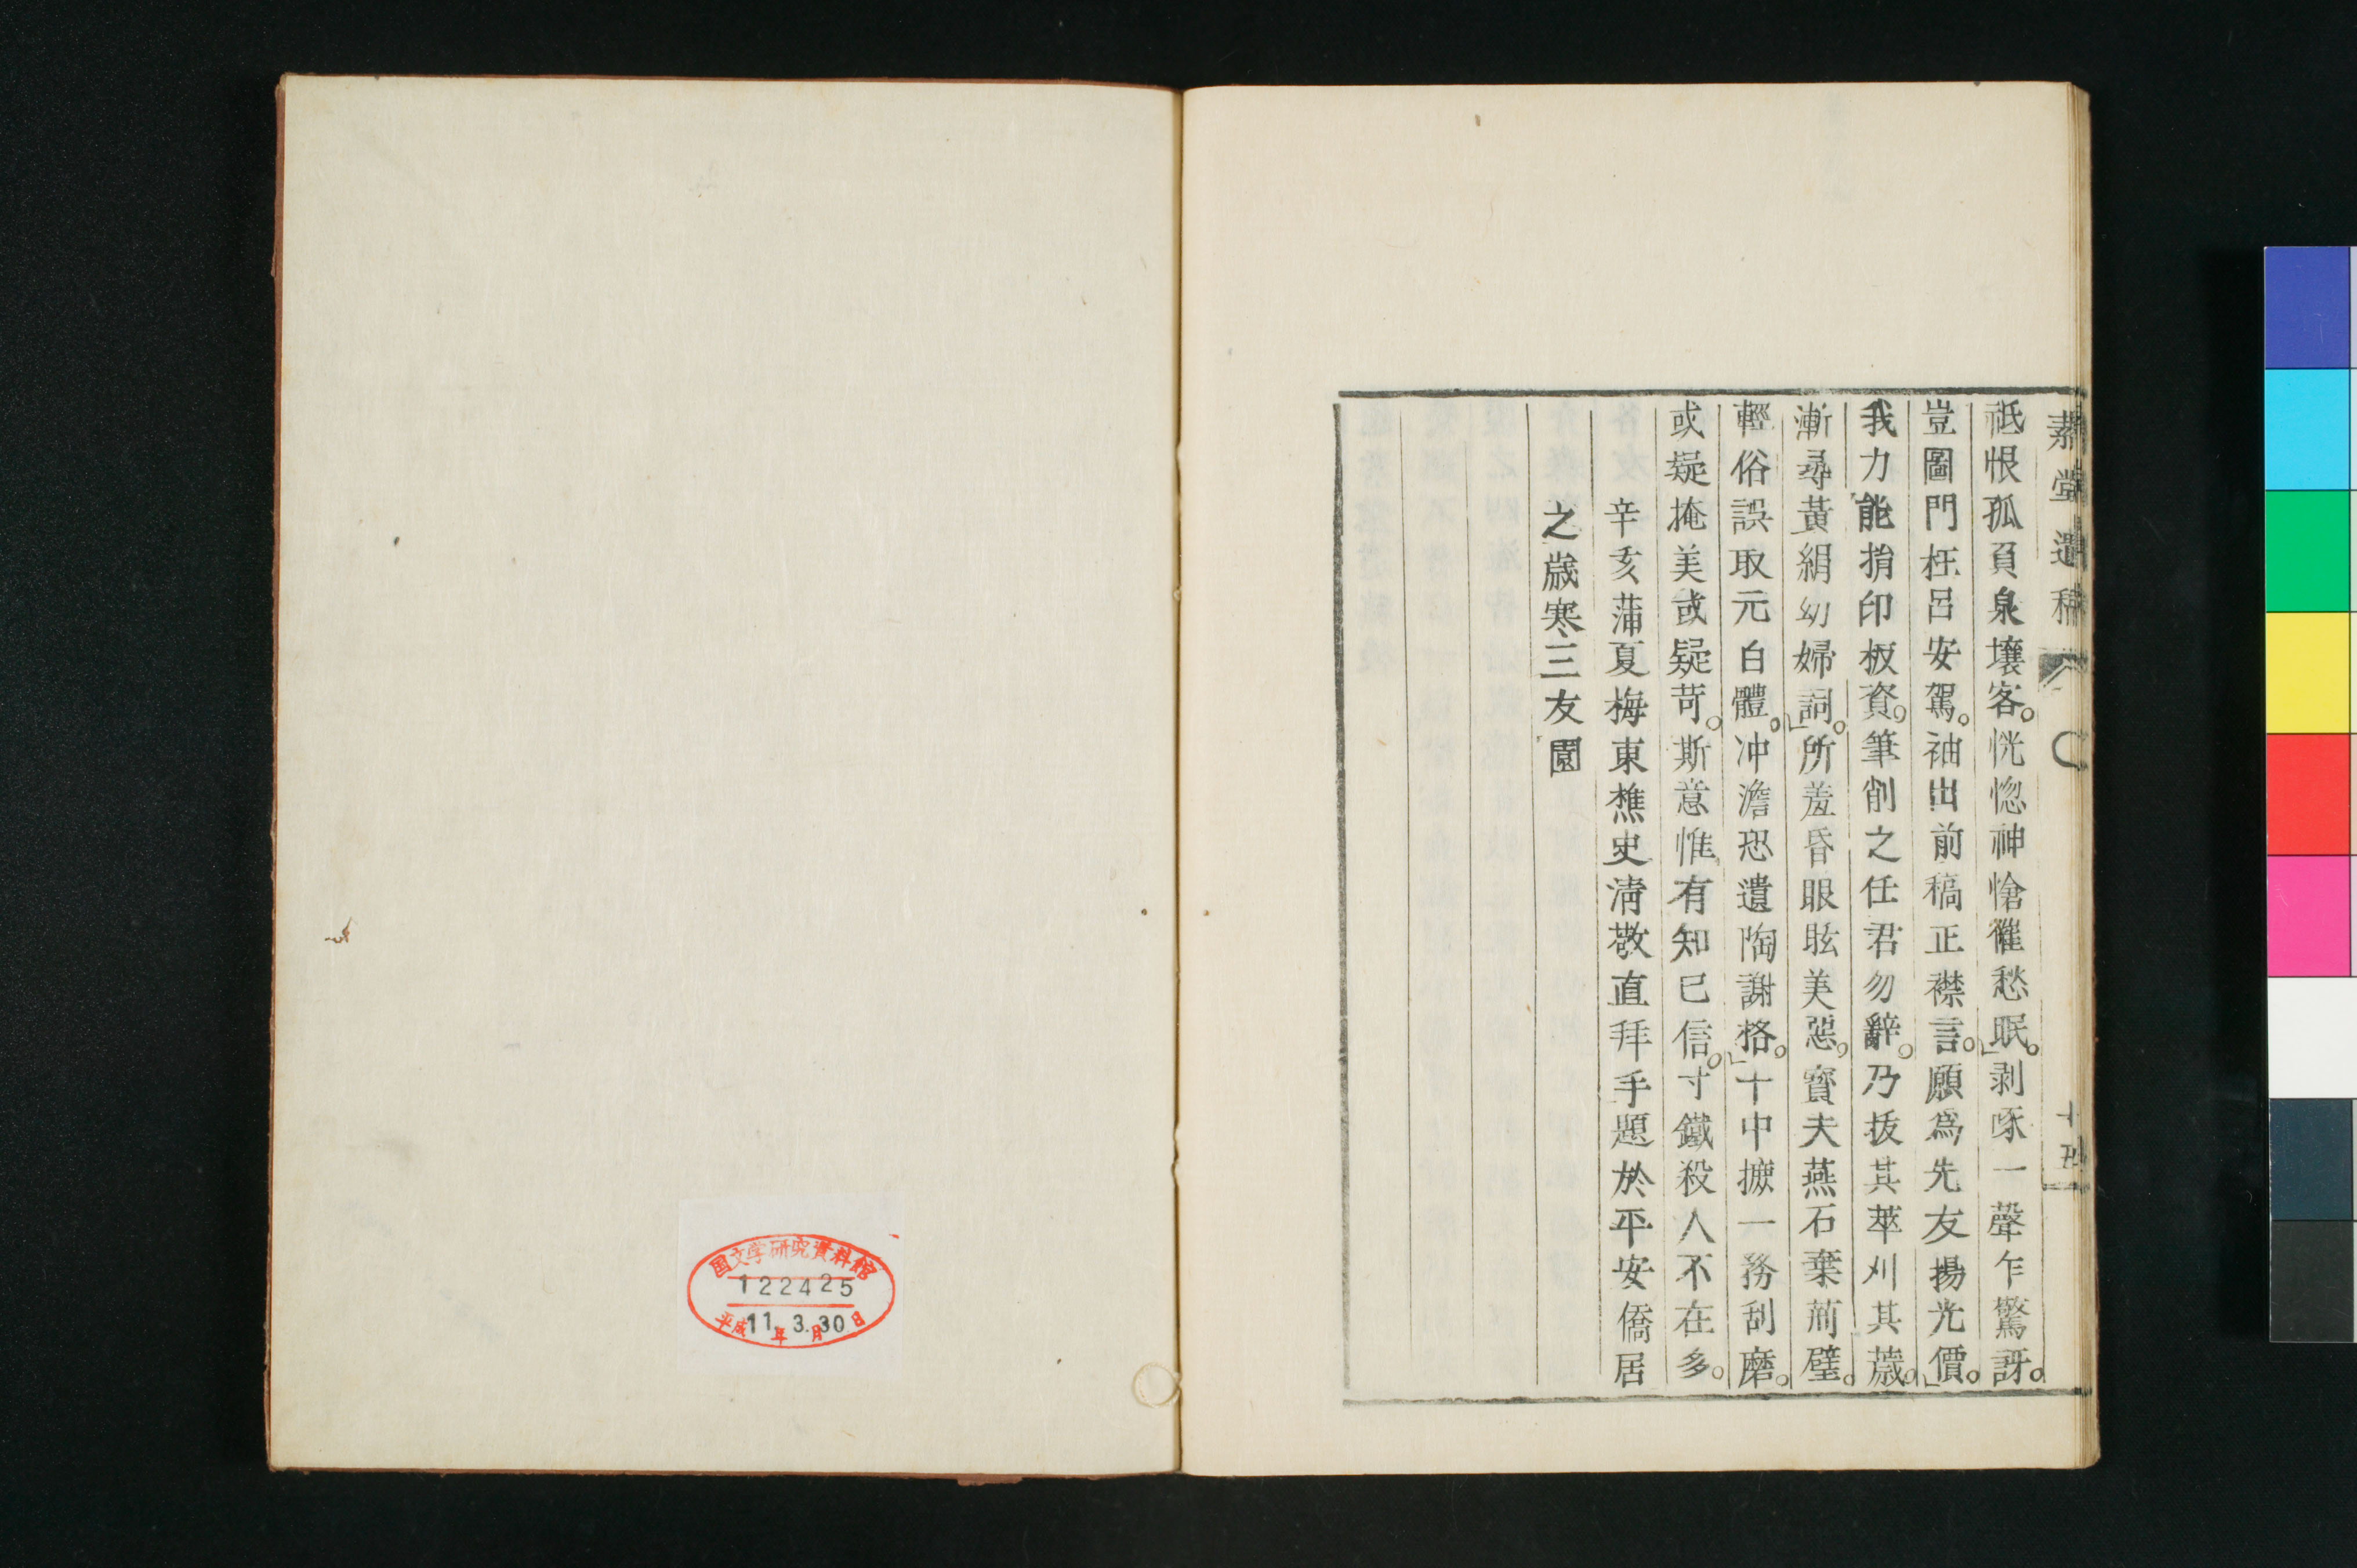 素堂遺稿
十五
祗恨孤負泉壤客。恍惚神愴催愁眠。剥啄一聲乍驚訝。
豈圖門枉呂安駕。袖出前稿正襟言。願爲先友揚光價。
我力能捐印板資。筆削之任君勿辭。乃抜其萃刈其薉。
漸尋黃絹幼婦詞。所羞昏眼眩美惡。寳夫燕石棄荊璧。
輕俗誤取元白體。冲澹恐遺陶謝格。十中摭一務刮磨。
或疑掩美或疑苛。斯意惟有知已信。寸鐵殺人不在多。
辛亥蒲夏梅東樵史淸敬直拜手題於平安僑居
之歲寒三友園
国文学研究資料館
122425
平成11年3月30日